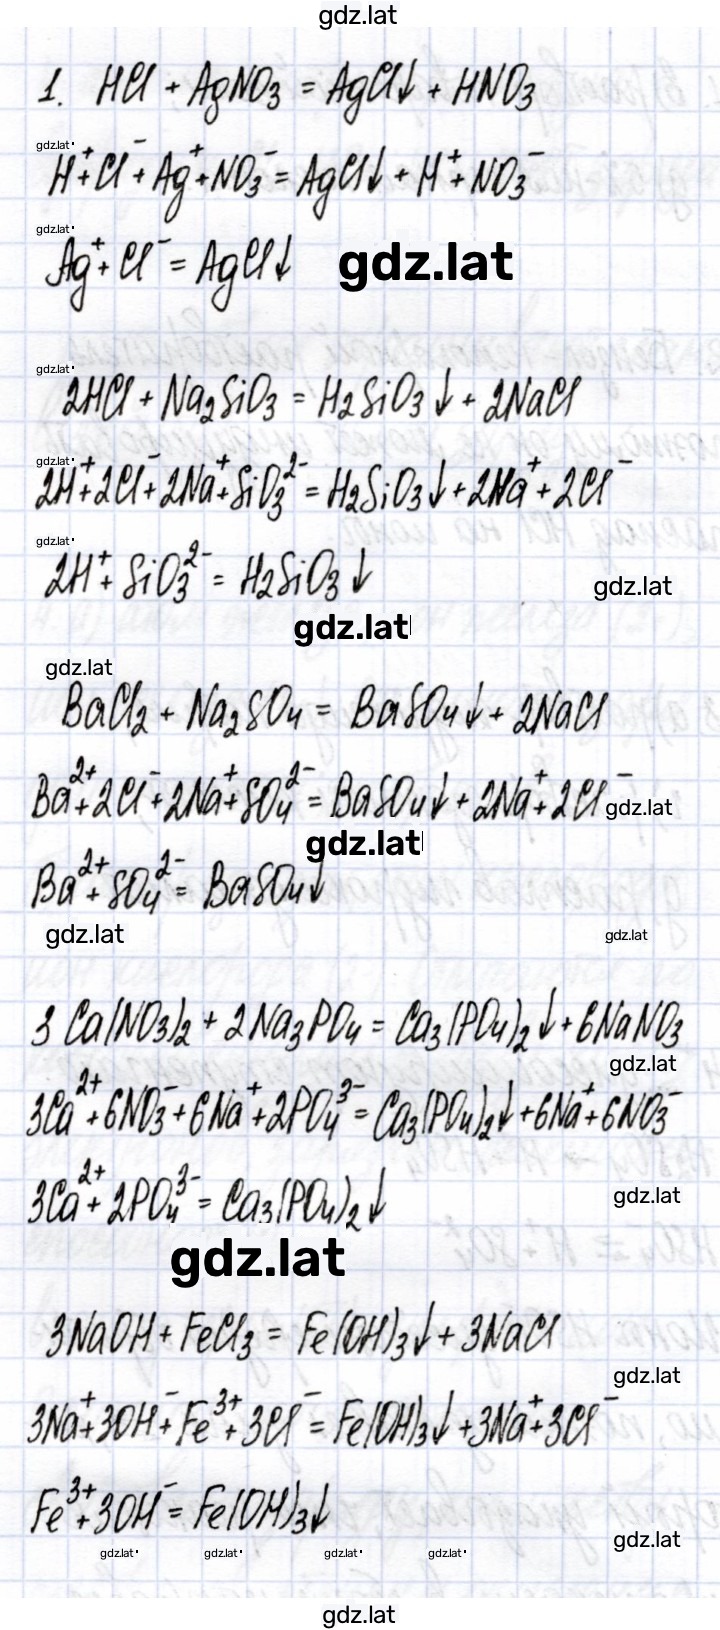 gdz.lat
1. HCl + AgNO₃ = AgCl↓ + HNO₃
gdz.lat
H⁺ + Cl⁻ + Ag⁺ + NO₃⁻ = AgCl↓ + H⁺ + NO₃⁻
gdz.lat
Ag⁺ + Cl⁻ = AgCl↓ gdz.lat
gdz.lat
2HCl + Na₂SiO₃ = H₂SiO₃↓ + 2NaCl
gdz.lat
2H⁺ + 2Cl⁻ + 2Na⁺ + SiO₃²⁻ = H₂SiO₃↓ + 2Na⁺ + 2Cl⁻
gdz.lat
2H⁺ + SiO₃²⁻ = H₂SiO₃↓ gdz.lat
gdz.lat
gdz.lat
BaCl₂ + Na₂SO₄ = BaSO₄↓ + 2NaCl
Ba²⁺ + 2Cl⁻ + 2Na⁺ + SO₄²⁻ = BaSO₄↓ + 2Na⁺ + 2Cl⁻ gdz.lat
gdz.lat
Ba²⁺ + SO₄²⁻ = BaSO₄↓
gdz.lat gdz.lat
3Ca(NO₃)₂ + 2Na₃PO₄ = Ca₃(PO₄)₂↓ + 6NaNO₃
gdz.lat
3Ca²⁺ + 6NO₃⁻ + 6Na⁺ + 2PO₄³⁻ = Ca₃(PO₄)₂↓ + 6Na⁺ + 6NO₃⁻
3Ca²⁺ + 2PO₄³⁻ = Ca₃(PO₄)₂↓ gdz.lat
gdz.lat
3NaOH + FeCl₃ = Fe(OH)₃↓ + 3NaCl
gdz.lat
3Na⁺ + 3OH⁻ + Fe³⁺ + 3Cl⁻ = Fe(OH)₃↓ + 3Na⁺ + 3Cl⁻
Fe³⁺ + 3OH⁻ = Fe(OH)₃↓
gdz.lat
gdz.lat gdz.lat gdz.lat gdz.lat
gdz.lat